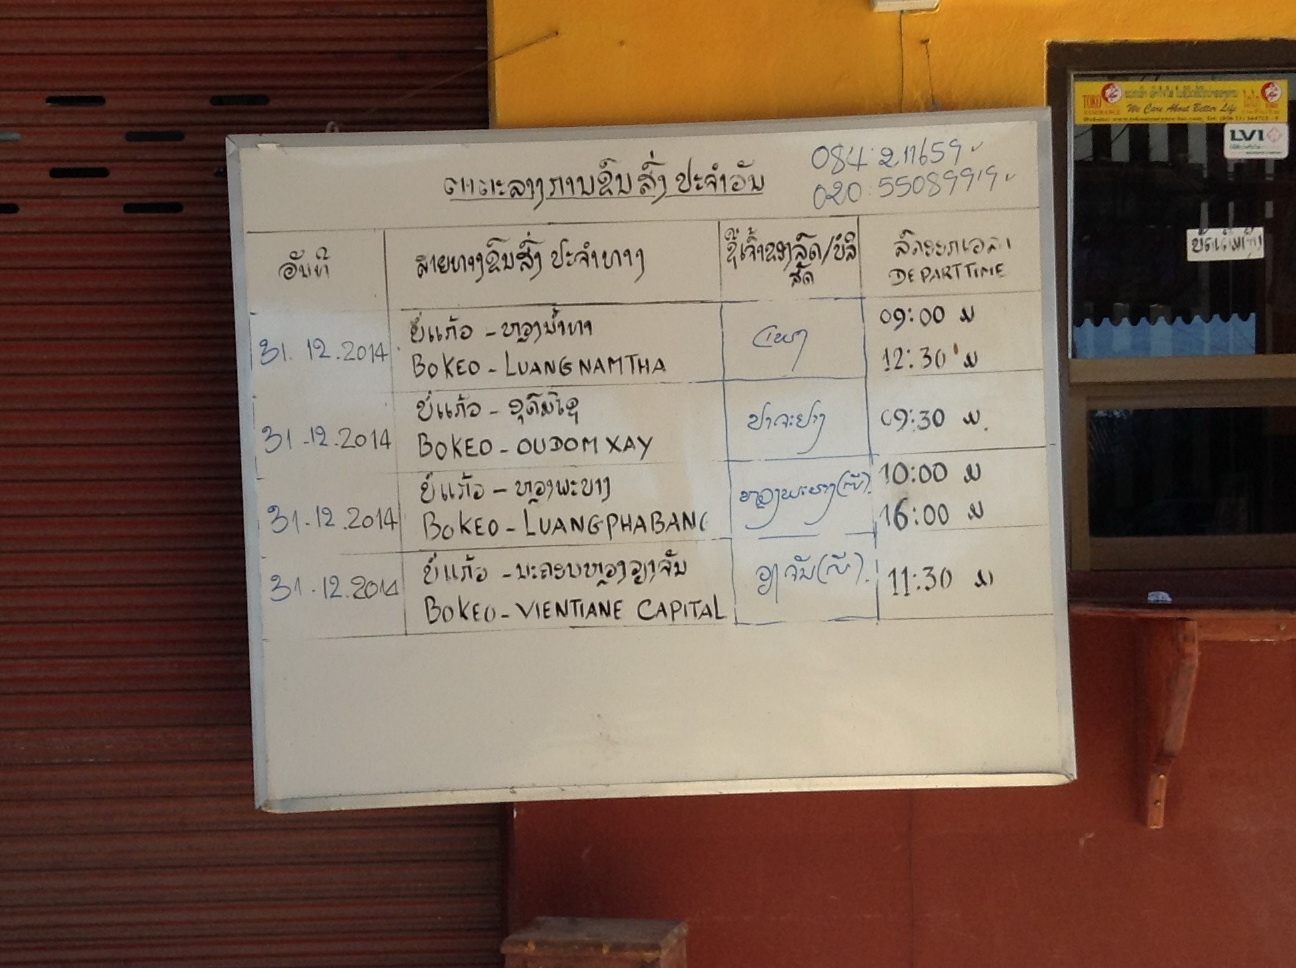 ຕາຕະລາງການຂົນສົ່ງ ປະຈຳວັນ
084:211659
020:5508
ວັນທີ
ສາຍທາງຂົນສົ່ງ ປະຈຳທາງ
ຊື່ເຈົ້າຂອງລົດ/ບໍລິ
ສັດ
ລົດອອກເວລາ
DEPARTTIME
31.12.2014
ບໍ່ແກ້ວ - ຫຼວງນ້ຳທາ
BOKEO - LUANGNAMTHA
09:00 ມ
12:30 ມ
31-12.2014
ບໍ່ແກ້ວ - ອຸດົມໄຊ
BOKEO - OUDOMXAY
09:30 ມ.
31-12.2014
ບໍ່ແກ້ວ - ຫຼວງພະບາງ
BOKEO - LUANGPHABANG
ຫຼວງພະບາງ
10:00 ມ
16:00 ມ
31-12.2014
ບໍ່ແກ້ວ - ນະຄອນຫຼວງວຽງຈັນ
BOKEO - VIENTIANE CAPITAL
ວຽງຈັນ
11:30 ມ
TOKO
We Care About Better Life
LVI